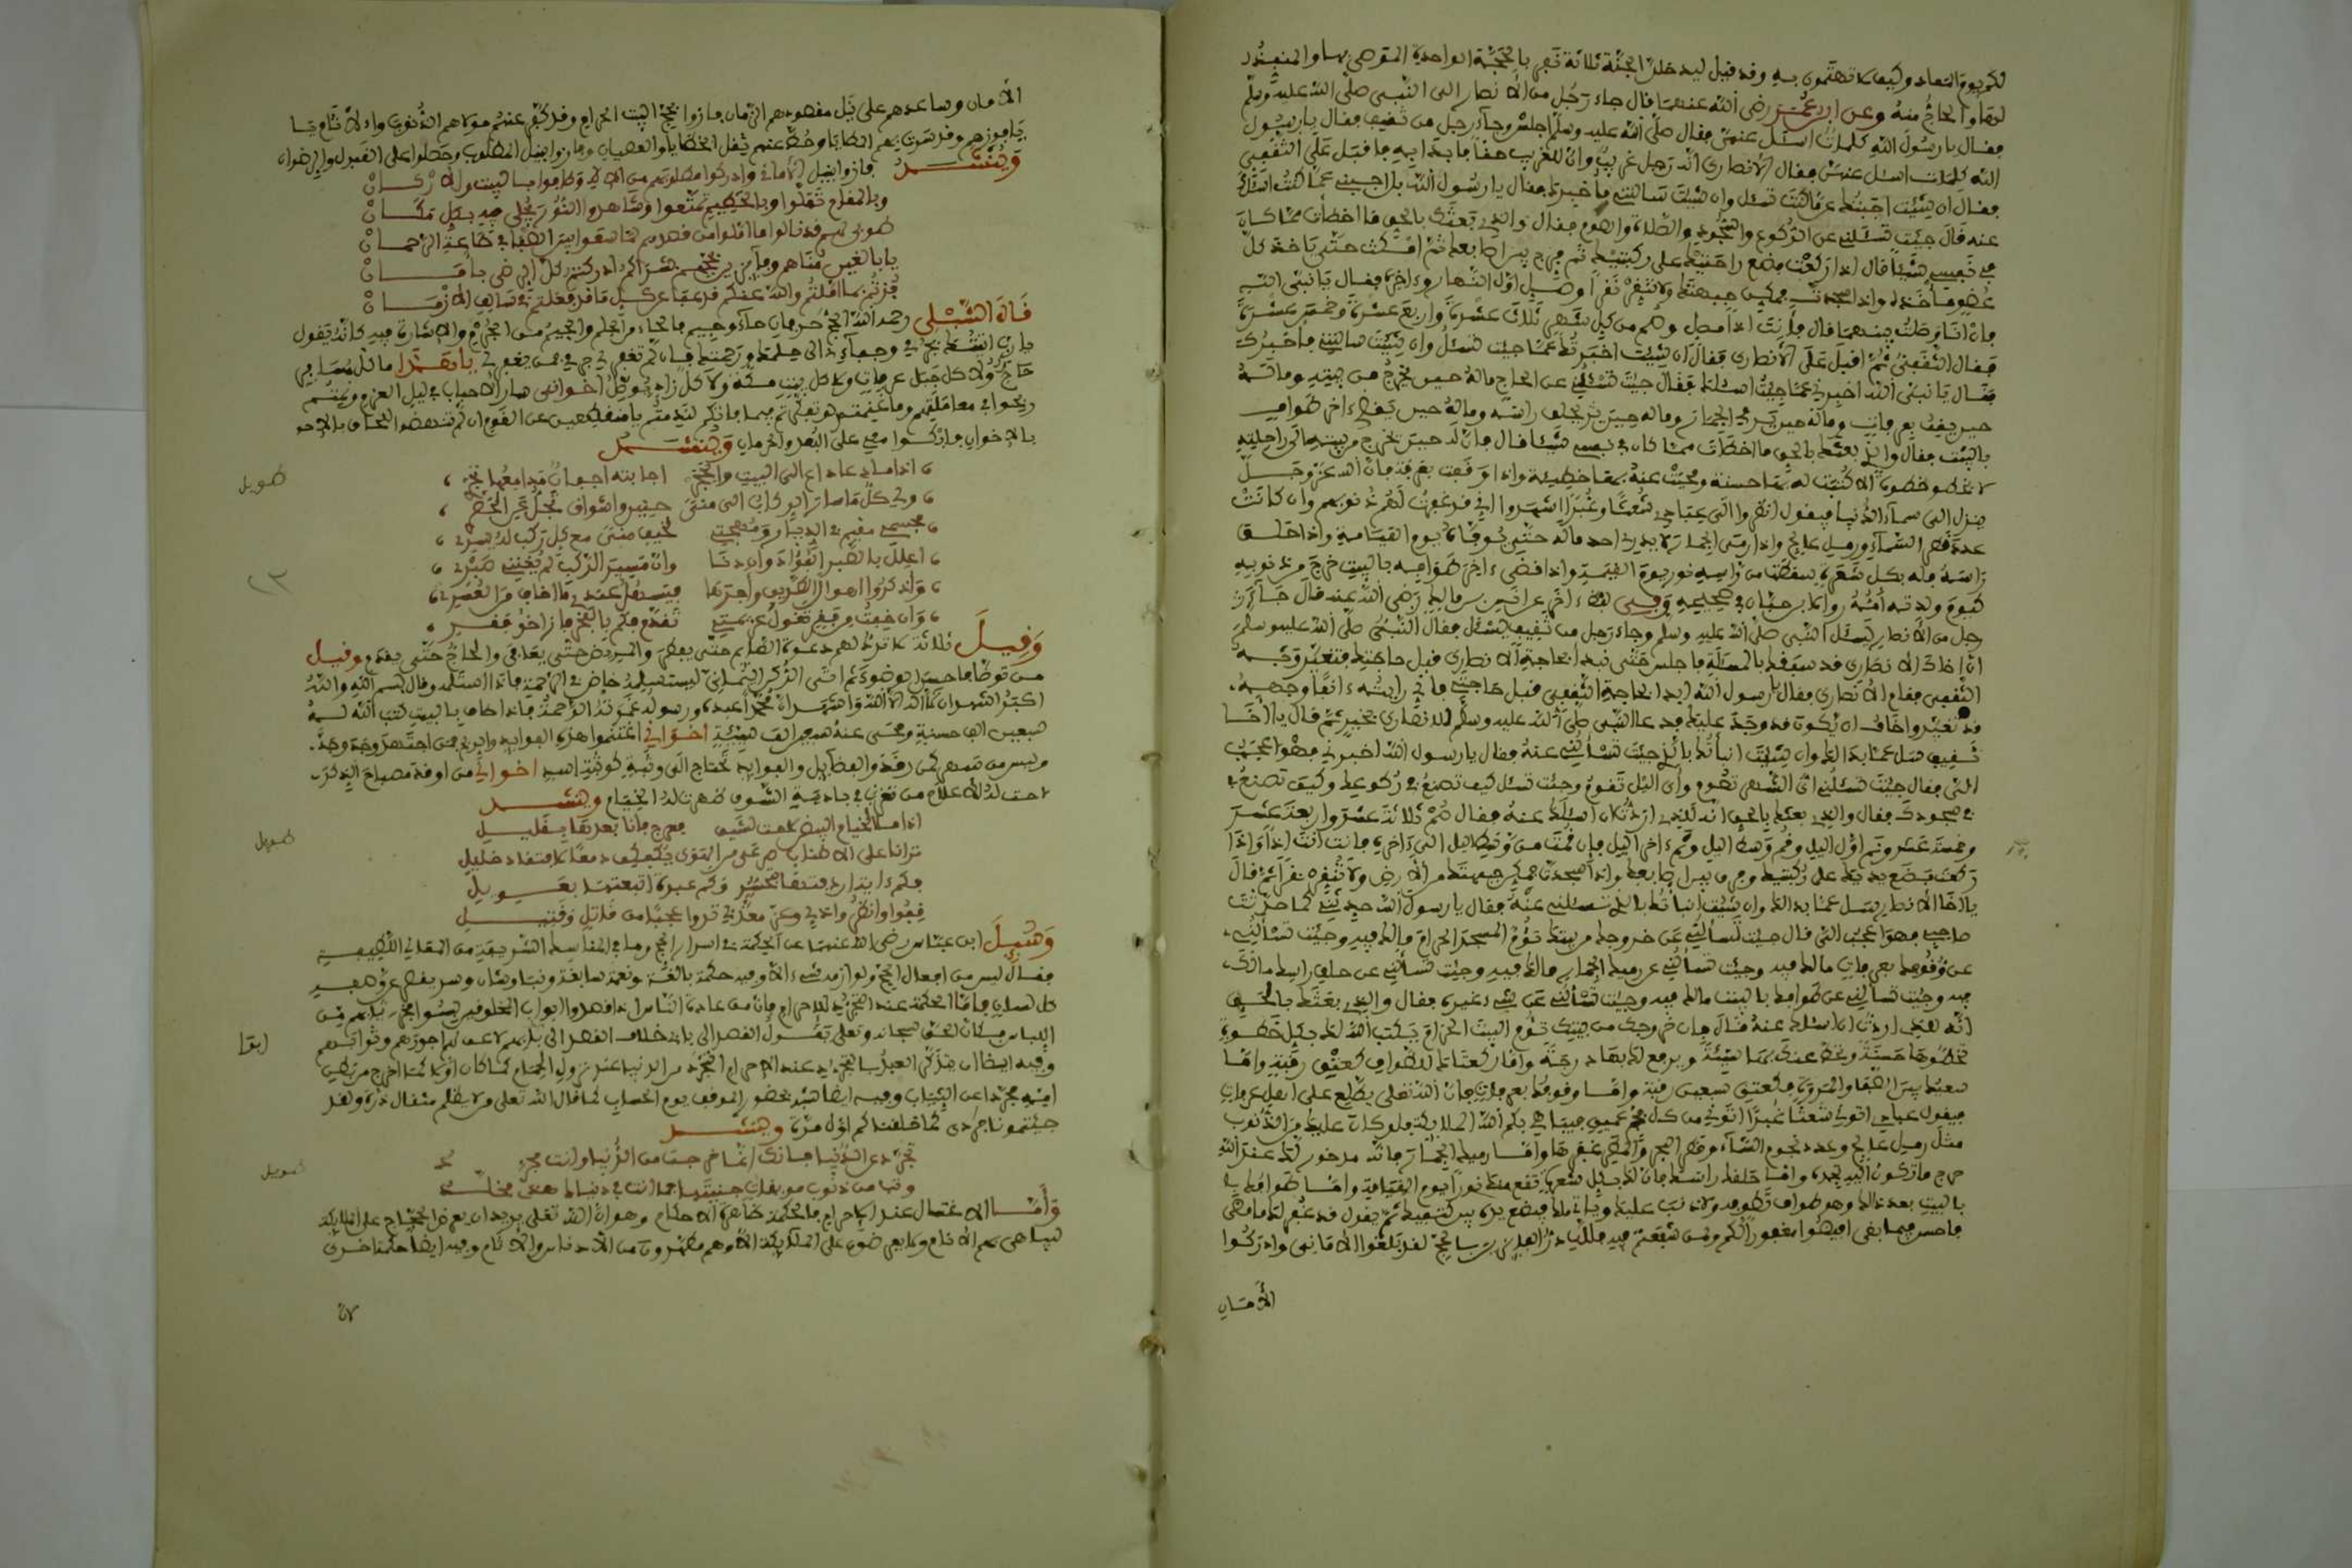 لكم يوم التعاد وكيف لا تهتمون به وقد قيل ليدخلن الجنة ثلاثة نفر بالحجة الواحدة الموصى بها والمنفذ
لها والحاج منه وعن ابن عمر رضي الله عنهما قال جاء رجل من الأنصار الى النبي صلى الله عليه وسلم
فقال يا رسول الله كلمات اسئل عنهن فقال صلى الله عليه وسلم اجلس وجاء رجل من ثقيف فقال يا رسول
الله كلمات اسئل عنهن فقال الانصاري انه رجل غريب وان للغريب حقا فابدا به فاقبل على الثقفي
فقال ان شئت اجبتك عما كنت تسئل وان شئت سالتني فاخبرك فقال يا رسول الله بل اجبني عما كنت اسئلك
عنه قال جئت تسئلني عن الركوع والسجود والصلاة والصوم فقال والذي بعثك بالحق ما اخطأت مما كان
في نفسي شيئا قال اذا ركعت فضع راحتيك على ركبتيك ثم فرج بين اصابعك ثم امكث حتى ياخذ كل
عضو مأخذه واذا سجدت فمكن جبهتك ولا تنقر نقرا وصل اول النهار وءاخره فقال يا نبي الله
فان انا وصلت بينهما قال فانت اذا مصل وصم من كل شهر ثلاث عشرة واربع عشرة وخمس عشرة
فقام الثقفي ثم اقبل على الأنصاري فقال ان شئت اخبرتك عما جئت تسئل وان شئت سالتني فأخبرك
فقال يا نبي الله اخبرني عما جئت اسئلك فقال جئت تسئلني عن الحاج ماله حين يخرج من بيته وماله
حين يقف بعرفات وماله حين يرمي الجمار وماله حين يحلق راسه وماله حين يقضي ءاخر طواف
بالبيت فقال والذي بعثك بالحق ما اخطأت مما كان في نفسي شيئا قال فان له حين يخرج من بيته ان راحلته
لا تخطو خطوة الا كتبت له بها حسنة ومحيت عنه بها خطيئة واذا وقف بعرفة فان الله عز وجل
ينزل الى سماء الدنيا فيقول انظروا الى عبادي شعثا وغبرا اشهدوا اني قد غفرت لهم ذنوبهم وان كانت
عدد قطر السماء ورمل عالج واذا رمى الجمار لا يدري احد ماله حتى يوفاه يوم القيامة واذا حلق
راسه فله بكل شعرة سقطت من راسه نور يوم القيمة واذا قضى ءاخر طوافه بالبيت خرج من ذنوبه
كيوم ولدته أمه رواه ابن حبان في صحيحه وفي لفظ ءاخر عن انس بن مالك رضي الله عنه قال جاء
رجل من الأنصار يسئل النبي صلى الله عليه وسلم وجاء رجل من ثقيف يسئل فقال النبي صلى الله عليه وسلم
ان اخاك الانصاري قد سبقك بالمسئلة فاجلس حتى نبدأ بحاجة الانصاري قبل حاجتك فتغير وجه
الثقفي فقام الأنصاري فقال يا رسول الله ابدا بحاجة الثقفي قبل حاجتي فاني رايته ءانفا وجهه
قد تغير واخاف ان يكون قد وجد عليك فدعا النبي صلى الله عليه وسلم للانصاري بخير ثم قال يا اخا
ثقيف سل عما بدا لك وان شئت انبأتك بالذي جئت تسألني عنه فقال يا رسول الله اخبرني فهو اعجب
الي فقال جئت تسئلني اي الشهر تصوم واي الليل تقوم وجئت تسئل كيف تصنع في ركوعك وكيف تصنع
في سجودك فقال والذي بعثك بالحق انه للذي اردت ان اسئلك عنه فقال صم ثلاثة عشر واربعة عشر
وخمسة عشر وقم اول الليل وقم وسط الليل وقم ءاخر الليل فان قمت من وسط الليل الى ءاخره فانت انت اذا واذا
ركعت فضع يديك على ركبتيك وفرق بين اصابعك واذا سجدت فمكن جبهتك من الأرض ولا تنقر نقرا ثم قال
يا اخا الانصار سل عما بدا لك وان شئت انبأتك بالذي تسئلني عنه فقال يا رسول الله حدثني كما حدثت
صاحبي فهو اعجب الي قال جئت تسألني عن خروجك من بيتك تؤم المسجد الحرام مالك فيه وجئت تسألني
عن وقوفك بعرفات مالك فيه وجئت تسألني عن رميك الجمار مالك فيه وجئت تسألني عن حلق راسك مالك
فيه وجئت تسألني عن طوافك بالبيت مالك فيه وجئت تسألني عن شيء غيره فقال والذي بعثك بالحق
انه للذي اردت ان اسئلك عنه قال فان خروجك من بيتك تؤم البيت الحرام يكتب الله لك بكل خطوة
تخطوها حسنة ويحط عنك بها سيئة ويرفع لك بها درجة واما ركعتاك للطواف كعتق رقبة واما
سعيك بين الصفا والمروة فكعتق سبعين رقبة واما وقوفك بعرفات فان الله تعلى يطلع على اهل عرفات
فيقول عبادي اتوني شعثا غبرا اتوني من كل فج عميق فيباهي بكم الله الملائكة فلو كان عليك من الذنوب
مثل رمل عالج وعدد نجوم السماء وقطر البحر والمطر غفرها واما رميك الجمار فانه مدخور لك عند الله
احوج ما تكون اليه بعده واما حلقك راسك فان لك بكل شعرة تقع منك نورا يوم القيامة واما طوافك
بالبيت بعد ذالك وهو طواف تطوف ولا ذنب عليك وياتي ملك فيضع يده بين كتفيك ثم يقول قد غفر لك ما مضى
فاحسن فيما بقي افيضوا مغفورا لكم ولمن شفعتم فيه لقد بلغوا الاماني وادركوا
الأمان
الأمان وساعدهم على نيل مقصودهم الزمان فازوا بحج البيت الحرام وقد كفر عنهم مولاهم الذنوب والاثام
يا فوزهم وقد سرت بهم المطايا وحط عنهم ثقل الخطايا والعصيان وفازوا بنيل المطلوب وحصلوا على القبول والرضوان
وينشد فازوا بنيل الأماني وادركوا مطلوبهم وطافوا بالبيت والاركان
وبالمقام تمثلوا وبالحطيم تمتعوا وشاهدوا النور يجلى فيه بكل مكان
طوبى لهم قد نالوا ما املوا من قصدهم لما سعوا بين الصفا في طاعة الرحمان
فزتم بما املتم والله عنكم قد عفا عن كل ما قد فعلتم في سالف الازمان
قال الشبلي رحمه الله الحج حرفان حاء وجيم فالحاء من الحلم والجيم من الجرم والاشارة فيه كانه يقول
يا رب اتيتك بجرمي وجفاءي الى حلمك ورحمتك فان لم تغفر لي جرمي فمن يغفر لي يا هذا ما كل مسافر
حاج ولا كل جبل عرفات ولا كل بيت مكة ولا كل زاد يوصل اخواني سار الاحباب في ليل العزم ونمتم
وربحوا في معاملتهم وما غنمتم يا منقطعين عن القوم ان لم تنهضوا للحاق بالاخوان
بالاخوان فابكوا معي على البعد والحرمان وينشد
اذا ما دعا داع الى البيت والحج اجابته اجفان مدامعها تجر
طويل
بجسمي مقيم في الديار ومهجتي لخيف منى مع كل ركب لدى يسر
اعلل بالصبر الفؤاد وان دنا وان مسير الركب لم يغنني صبر
وان ذكروا اهوال الطريق واجرها
وان خفت من فقر تقول عزيمتي تقدم فكم بالحج فاز اخو فقر
وقيل ثلاثة لا ترد لهم دعوة الصائم حتى يفطر والمريض حتى يعافى والحاج حتى يقدم وقيل
من توضا فاحسن الوضوء ثم اتى الركن اليماني ليستلمه خاض في الرحمة فاذا استلمه وقال بسم الله والله
اكبر اشهد ان لا اله الا الله واشهد ان محمدا عبده ورسوله غمرته الرحمة فاذا طاف بالبيت كتب الله له
سبعين الف حسنة ومحى عنه سبعين الف سيئة اخواني اغتنموا هذه الفوايد
وليس من سهر كمن رقد والفضايل والفوايد تحتاج الى وثبة كوثبة اسد اخواني من اوقد مصباح الذكر
لاحت له الاعلام من تغرب في بادية الشوق ظهرت له الخيام وينشد
طويل
ترانا على الاطناب صرعى من الهوى
قفوا وانظروا ذلي وعز معذبي تروا عجبا من قاتل وقتيل
وسئل ابن عباس رضي الله عنهما عن الحكمة في اسرار الحج وما في المناسك الشريفة من المعاني اللطيفة
فقال ليس من افعال الحج ولوازمه شيء الا وفيه حكمة بالغة ونعمة سابغة ونبا وشان وسر يقصر عن وصفه
كل لسان فاما الحكمة عند التجريد للاحرام فان من عادة الناس اذا قصدوا ابواب المخلوقين لبسوا افخر ثيابهم من
اللباس فكان الحق سبحانه وتعلى يقول القصد الى بابي خلاف القصد الى بابهم
ايضا
وفيه ايضا ان يتذكر العبد بالتجريد عند الاحرام التجرد من الدنيا عند نزول الحمام كما كان اولا لما خرج من بطن
امه مجردا عن الثياب وفيه ايضا شبه بحضور الموقف يوم الحساب كما قال الله تعلى ولا يظلم مثقال ذرة ولقد
جئتمونا فرادى كما خلقناكم اول مرة وينشد
تجرد عن الدنيا فانك انما خرجت من الدنيا وانت مجرد
طويل
واما الاغتسال عند الاحرام فالحكمة ظاهرة الاحكام وهو ان الله تعلى يريد ان يعرض الحجاج على الملايكة
ليباهي بهم الانام ولا يعرضون على الملايكة الا وهم مطهرون من الادناس والاثام وفيه ايضا حكمة اخرى
لان